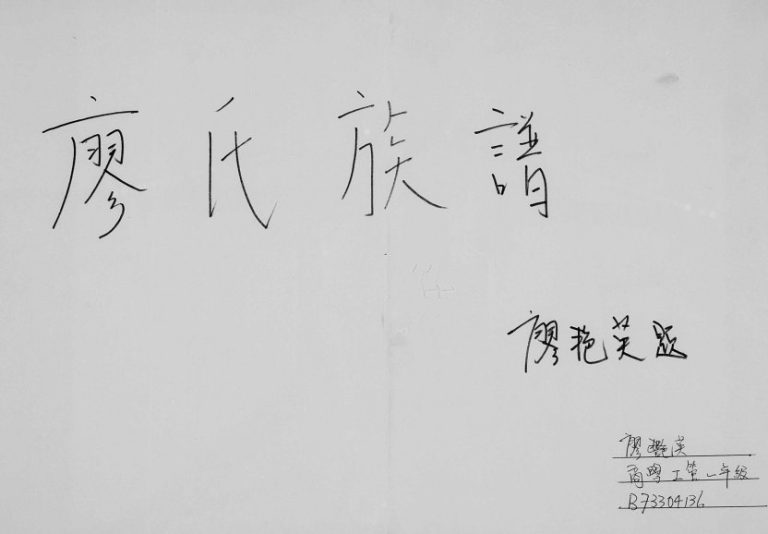 廖氏族譜
廖艳英題
廖艷英
商學工管一年級
B73304136